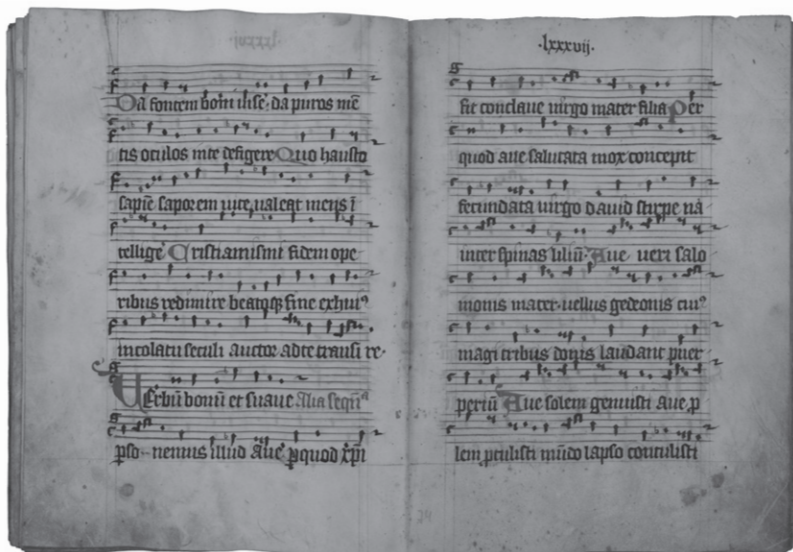 Da fontem boni vise. da puros mē
tis oculos in te defigere Quo hausto
sapīe saporem vite valeat mens ī
tellige Cristianismi fidem ope
ribus redimire beatoqȝ fine ex huiꝰ
incolatu seculi auctor ad te transire.
Uerbū bonū et suaue Alia sequēᵃ
psonemus illud Aue p quod xp̄i
.lxxxvij.
fit conclaue uirgo mater filia Per
quod aue salutata mox concepit
fecundata uirgo dauid stirpe na
inter spinas liliū. Aue ueri salo
monis mater. uellus gedeonis cuiꝰ
magi tribus donis laudant puer
periū Aue solem genuisti aue p
lem ptulisti mūdo lapso contulisti